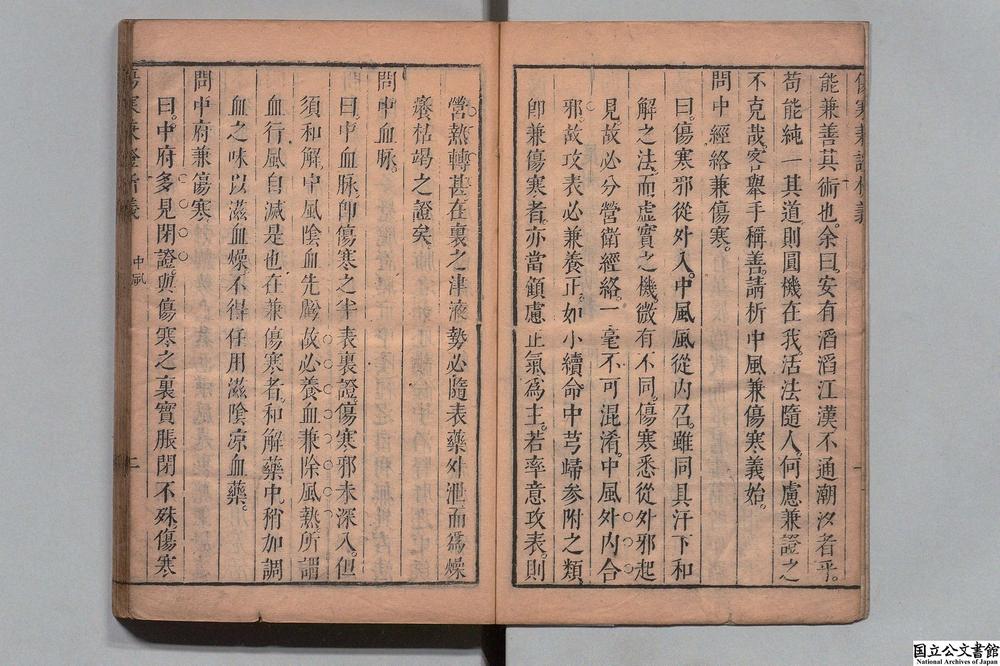 傷寒兼證析義
能兼善其術也。余曰。安有滔滔江漢不通潮汐者乎。
苟能純一其道則圓機在我。活法隨人。何慮兼證之
不克哉。客舉手稱善。請析中風兼傷寒義始。
問中經絡兼傷寒。
曰。傷寒邪從外入。中風風從内召。雖同具汗下和
解之法。而虛實之機。微有不同。傷寒悉從外邪起
見。故必分營衛經絡。一毫不可混淆。中風外内合
邪。故攻表必兼養正。如小續命中芎歸參附之類。
卽兼傷寒者。亦當顧慮正氣爲主。若率意攻表。則
營熱轉甚。在裏之津液。勢必隨表藥外泄。而爲燥
癢枯竭之證矣。
問中血脉。
曰。中血脉卽傷寒之半表裏證。傷寒邪未深入。但
須和解。中風陰血先虧。故必養血兼除風熱。所謂
血行風自滅是也。在兼傷寒者。和解藥中。稍加調
血之味以滋血燥。不得仔用滋陰凉血藥。
問中府兼傷寒。
曰。中府多見閉證。與傷寒之裏實脹閉不殊。傷寒
傷寒兼證析義
中風
二
国立公文書館
National Archives of Japan